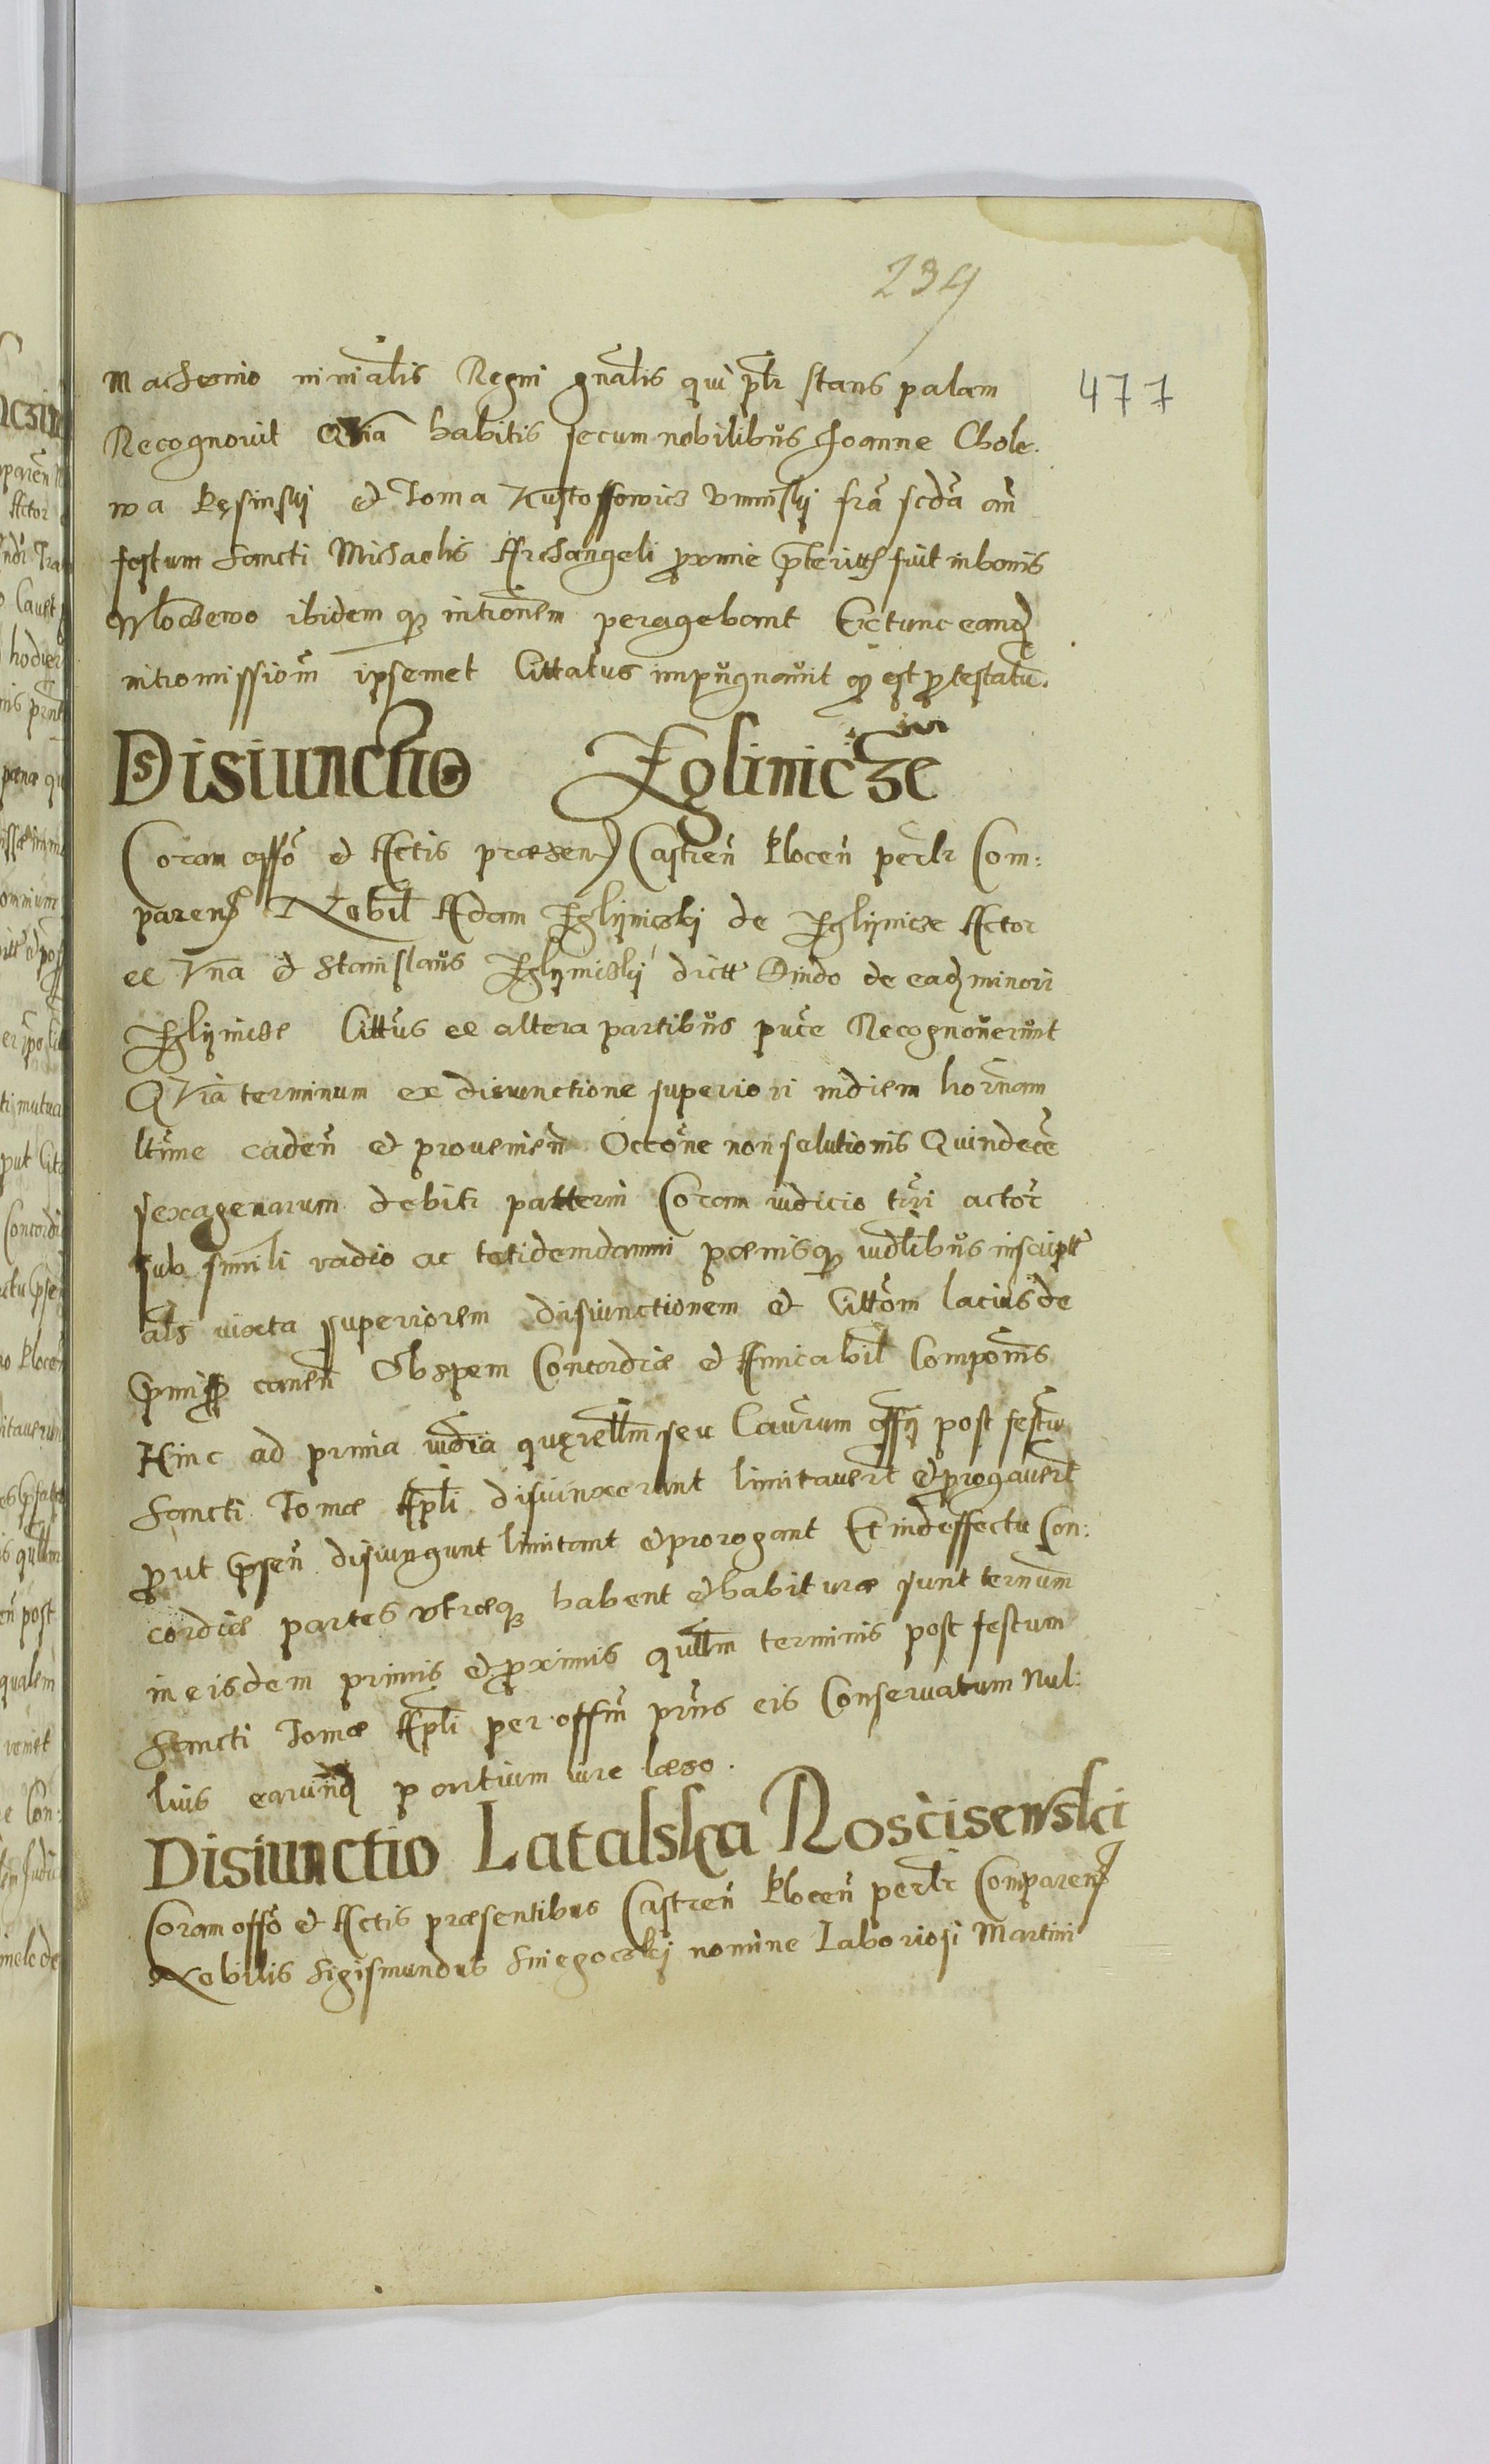 239
477
Machcino ministialis Regni gnalis qui pblr stans palam
Recognovit Quia habitis secum nobilibus Joanne Chole-
wa Kęsinskj et Toma Kristossowicz Uminskj fra scda an
festum Sancti Michaelis Archangeli proxime preterittu fuit in bonis
Wlochewo ibidem qz intromnem peragebant Extunc eand
intromissiom ipsemet Cittatus impugnavit qd est protestatu.
Disiunctio Zglinicze
Coram offo et Actis praesen Castren Plocen perlr Com:
paren Nobil Adam Zglynicski de Zglynicze Actor
ex Una et Stanislaus Zglynicskj dictt Dindo de ead minori
Zglynicze Cittus ex altera partibus puce Recognoverunt
Quia terminum ex disiunctione superiori in diem hornam
ltime caden et provenien Occone non solutionis Quindece
sexagenarum debiti patterni Coram iudicio trri actor
sub simili vadio ac totidem damni paenisqz iudlibus inscriptt
als iuxta superiorem disiunctionem et Cittom lacius de
pmiss canen Ob spem Concordiae et Amicabil Compoinis
Hinc ad prima iudia quęrellm seu Caurum offij post festu
Sancti Tomae Apli disiunxerunt limitavert et prorogavert
prout psen disiungunt limitant et prorogant Et in deffectu Con:
cordiae partes utraeqz habent et habiturae sunt ternum
in eisdem primis et proximis qullm terminis post festum
Sancti Tomae Apli per offm prns eis Conservatum Nul:
lius earund partium iure laeso.
Disiunctio Latalska Roscisewski
Coram offo et Actis praesentibus Castren Plocen perlr Comparen
Nobilis Sigismundus Sniegocskj nomine Laboriosi Martini